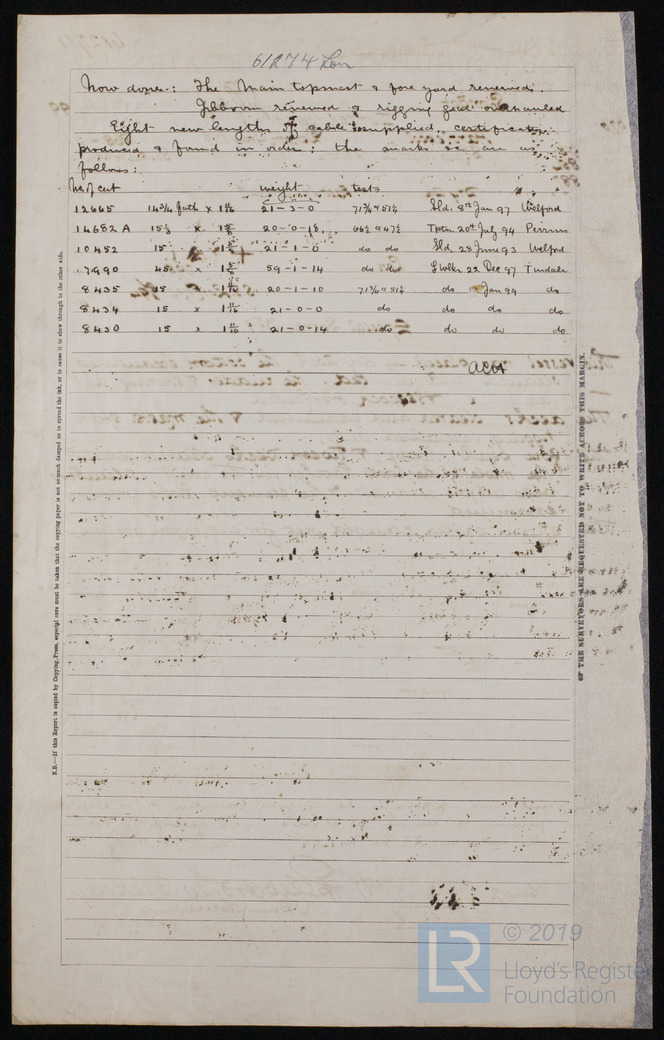 61274 Lon
Now done:- The Main topmast & fore yard renewed.
Jibboom renewed & rigging good overhauled
Eight new lengths of cable supplied, certificates
produced & found in order; the marks &c are as
follows:
No of cert weight tests
12665 14 3/4 fath x 1 11/16 21-3-0 Sld. 8th Jan 97 Welford
14682 A 15 1/2 x 20-0-18 Tptn 20th July 94 Perrins
10452 15 x 21-1-0 do do Sld. 28 June 93 Welford
7990 45 x 59-1-14 do do 22 Dec 97 Tindale
8435 15 x 1 11/16 20-1-10 do Jan 99 do
8434 15 x 1 11/16 21-0-0 do do do do
8430 15 x 1 11/16 21-0-14 do do do do
N.B.—If this Report is copied by Copying-Press, especial care must be taken that the copying paper is not so much damped as to spread the ink, or to cause it to show through to the other side.
OF THE SURVEYORS ARE REQUESTED NOT TO WRITE ACROSS THIS MARGIN.
LR © 2019
Lloyd's Register
Foundation